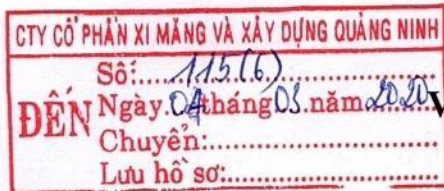 CTY CỔ PHẦN XI MĂNG VÀ XÂY DỰNG QUẢNG NINH
Số:....115(6)....
ĐẾN Ngày.04.tháng03.năm2020
Chuyển:....
Lưu hồ sơ:....